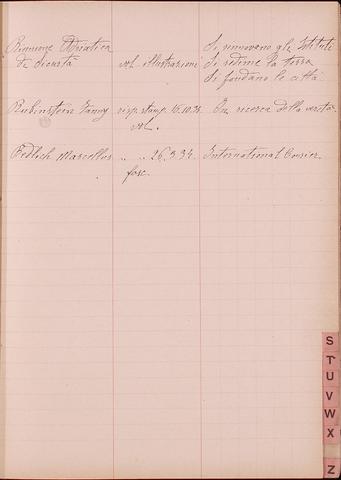 Riunione Adriatica
di Sicurtà
vol. illustrazioni
Si rinnovano gli Istituti
Si redime la terra
Si fondano le città
Rubinstein Fanny
risp. stamp. 15.10.28
vol.
In ricerca della verità
Redlich Marcellus
" " 26.3.34
fasc.
International Courier
S
T
U
V
W
X
Z